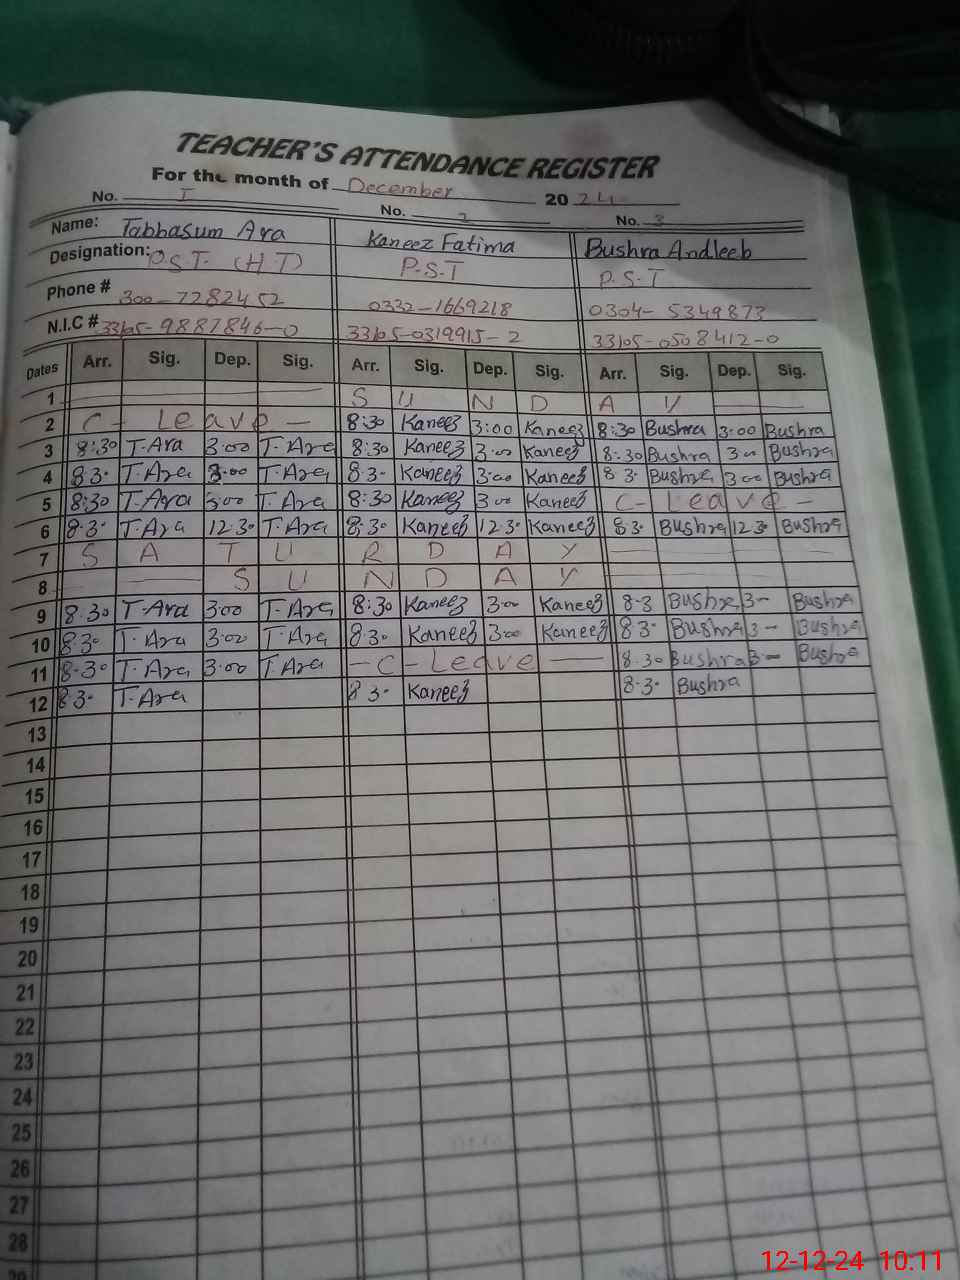 TEACHER'S ATTENDANCE REGISTER
For the month of December 2024
No. I No. 2 No. 3
Name: Tabbasum Ara Kaneez Fatima Bushra Andleeb
Designation: P.S.T. (H.T) P.S.T P.S.T
Phone # 300-7282452 0332-1669218 0304-5349873
N.I.C # 33105-9887846-0 33105-0319915-2 33105-0508412-0
Dates Arr. Sig. Dep. Sig. Arr. Sig. Dep. Sig. Arr. Sig. Dep. Sig.
1 S U N D A Y
2 C- Leave - 8:30 Kaneez 3:00 Kaneez 8:30 Bushra 3:00 Bushra
3 8:30 T-Ara 3:00 T-Ara 8:30 Kaneez 3:00 Kaneez 8:30 Bushra 3:00 Bushra
4 8:30 T-Ara 3:00 T-Ara 8:30 Kaneez 3:00 Kaneez 8:30 Bushra 3:00 Bushra
5 8:30 T-Ara 3:00 T-Ara 8:30 Kaneez 3:00 Kaneez C- Leave -
6 8:30 T-Ara 12:30 T-Ara 8:30 Kaneez 12:30 Kaneez 8:30 Bushra 12:30 Bushra
7 S A T U R D A Y
8 S U N D A Y
9 8:30 T-Ara 3:00 T-Ara 8:30 Kaneez 3:00 Kaneez 8-3 Bushra 3- Bushra
10 8:30 T-Ara 3:00 T-Ara 8:30 Kaneez 3:00 Kaneez 8:3- Bushra 3- Bushra
11 8:30 T-Ara 3:00 T-Ara - C - Leave - 8:30 Bushra 3- Bushra
12 8:30 T-Ara 8:30 Kaneez 8:30 Bushra
13
14
15
16
17
18
19
20
21
22
23
24
25
26
27
28
29
12-12-24 10:11